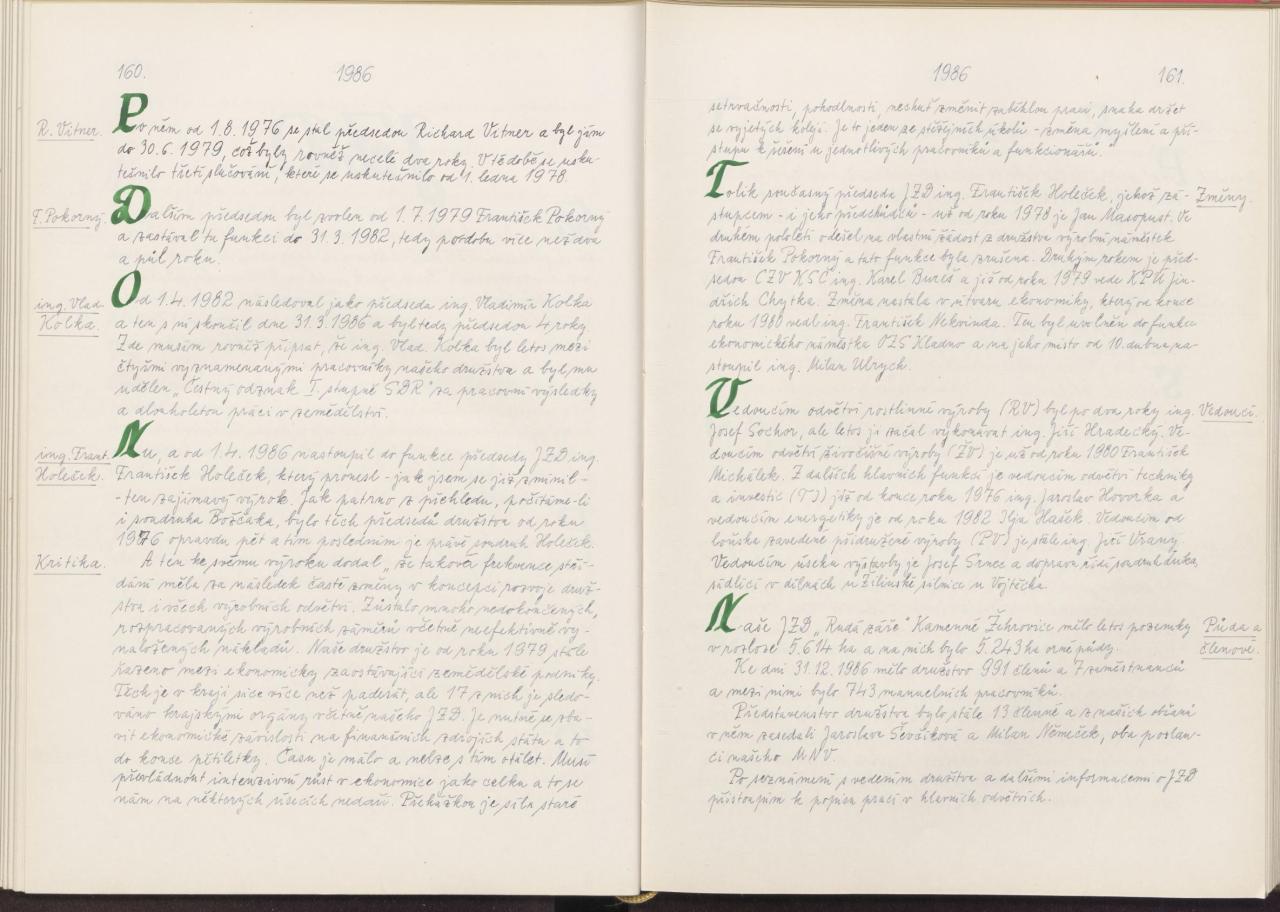 160.
1986
R. Vitner.
Po něm od 1.8.1976 se stal předsedou Richard Vitner a byl jím
do 30.6.1979, což byly rovněž necelé dva roky. V té době se usku-
tečnilo třetí slučování, které se uskutečnilo od 1. ledna 1978.
F. Pokorný.
Dalším předsedou byl zvolen od 1.7.1979 František Pokorný
a zastával tu funkci do 31.3.1982, tedy po dobu více než dva
a půl roku.
ing. Vlad.
Kolka.
Od 1.4.1982 následoval jako předseda ing. Vladimír Kolka
a ten s ní skončil dne 31.3.1986 a byl tedy předsedou 4 roky.
Zde musím rovněž připsat, že ing. Vlad. Kolka byl letos mezi
čtyřmi vyznamenanými pracovníky našeho družstva a byl mu
udělen „Čestný odznak I. stupně SDR" za pracovní výsledky
a dlouholetou práci v zemědělství.
ing. Frant.
Holeček.
Nu, a od 1.4.1986 nastoupil do funkce předsedy JZD ing.
František Holeček, který pronesl - jak jsem se již zmínil -
- ten zajímavý výrok. Jak patrno z přehledu, počítáme-li
i soudruha Božčáka, bylo těch předsedů družstva od roku
1976 opravdu pět a tím posledním je právě soudruh Holeček.
Kritika.
A ten ke svému výroku dodal „že taková frekvence stří-
dání měla za následek časté změny v koncepci rozvoje druž-
stva i všech výrobních odvětví. Zůstalo mnoho nedokončených,
rozpracovaných výrobních záměrů včetně neefektivně vy-
naložených nákladů. Naše družstvo je od roku 1979 stále
řazeno mezi ekonomicky zaostávající zemědělské podniky.
Těch je v kraji sice více než padesát, ale 17 z nich je sledo-
váno krajskými orgány včetně našeho JZD. Je nutné se zba-
vit ekonomické závislosti na finančních zdrojích státu a to
do konce pětiletky. Času je málo a nelze s tím otálet. Musí
převládnout intenzivní růst v ekonomice jako celku a to se
nám na některých úsecích nedaří. Překážkou je síla staré
1986
161.
setrvačnosti, pohodlnosti, nechuť změnit zaběhlou praxi, snaha držet
se vyjetých kolejí. Je to jeden ze stěžejních úkolů - změna myšlení a pří-
stupu k řešení u jednotlivých pracovníků a funkcionářů."
Změny.
Tolik současný předseda JZD ing. František Holeček, jehož zá-
stupcem - i jeho předchůdců - už od roku 1978 je Jan Masopust. Ve
druhém pololetí odešel na vlastní žádost z družstva výrobní náměstek
František Pokorný a tato funkce byla zrušena. Druhým rokem je před-
sedou CZV KSČ ing. Karel Bureš a již od roku 1979 vede KPÚ Jin-
dřich Chytka. Změna nastala v útvaru ekonomiky, který od konce
roku 1980 vedl ing. František Nekvinda. Ten byl uvolněn do funkce
ekonomického náměstka OZS Kladno a na jeho místo od 10. dubna na-
stoupil ing. Milan Ulrych.
Vedoucí.
Vedoucím odvětví rostlinné výroby (RV) byl po dva roky ing.
Josef Sochor, ale letos ji začal vykonávat ing. Jiří Hradecký. Ve-
doucím odvětví živočišné výroby (ŽV) je už od roku 1980 František
Michálek. Z dalších hlavních funkcí je vedoucím odvětví techniky
a investic (TI) již od konce roku 1976 ing. Jaroslav Hovorka a
vedoucím energetiky je od roku 1982 Ilja Hašek. Vedoucím od
loňska zavedené přidružené výroby (PV) je stále ing. Jiří Vraný.
Vedoucím úseku výstavby je Josef Srnec a dopravu řídí soudruh
sídlící v dílnách u Žilinské silnice u Vojtěcha.
Půda a
členové.
Naše JZD „Rudá záře" Kamenné Žehrovice mělo letos pozemky
v rozloze 5.614 ha a na nich bylo 5.243 ha orné půdy.
Ke dni 31.12.1986 mělo družstvo 991 členů a 7 zaměstnanců
a mezi nimi bylo 743 manuelních pracovníků.
Představenstvo družstva bylo stále 13 členné a z našich občanů
v něm zasedali Jaroslava Ševčíková a Milan Němeček, oba poslan-
ci našeho MNV.
Po seznámení s vedením družstva a dalšími informacemi o JZD
přistoupím k popisu prací v hlavních odvětvích.